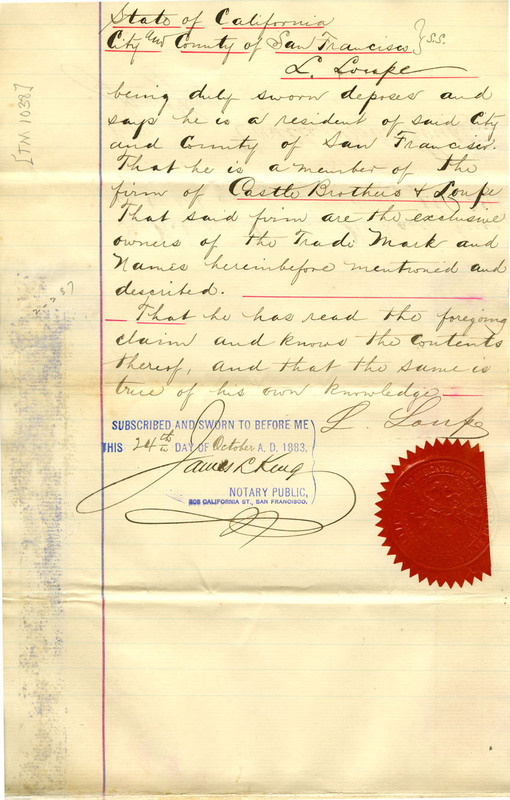 State of California
City and County of San Francisco } S.S.
L. Loupe
being duly sworn deposes and
says he is a resident of said City
and County of San Francisco.
That he is a member of the
firm of Castle Brothers & Loupe
That said firm are the exclusive
owners of the Trade Mark and
Names hereinbefore mentioned and
described.
That he has read the foregoing
claim and knows the contents
thereof, and that the same is
true of his own knowledge
L. Loupe
SUBSCRIBED AND SWORN TO BEFORE ME
THIS 24th DAY OF October A. D. 1883.
James L King
NOTARY PUBLIC,
CALIFORNIA ST., SAN FRANCISCO.
[TM 1039]